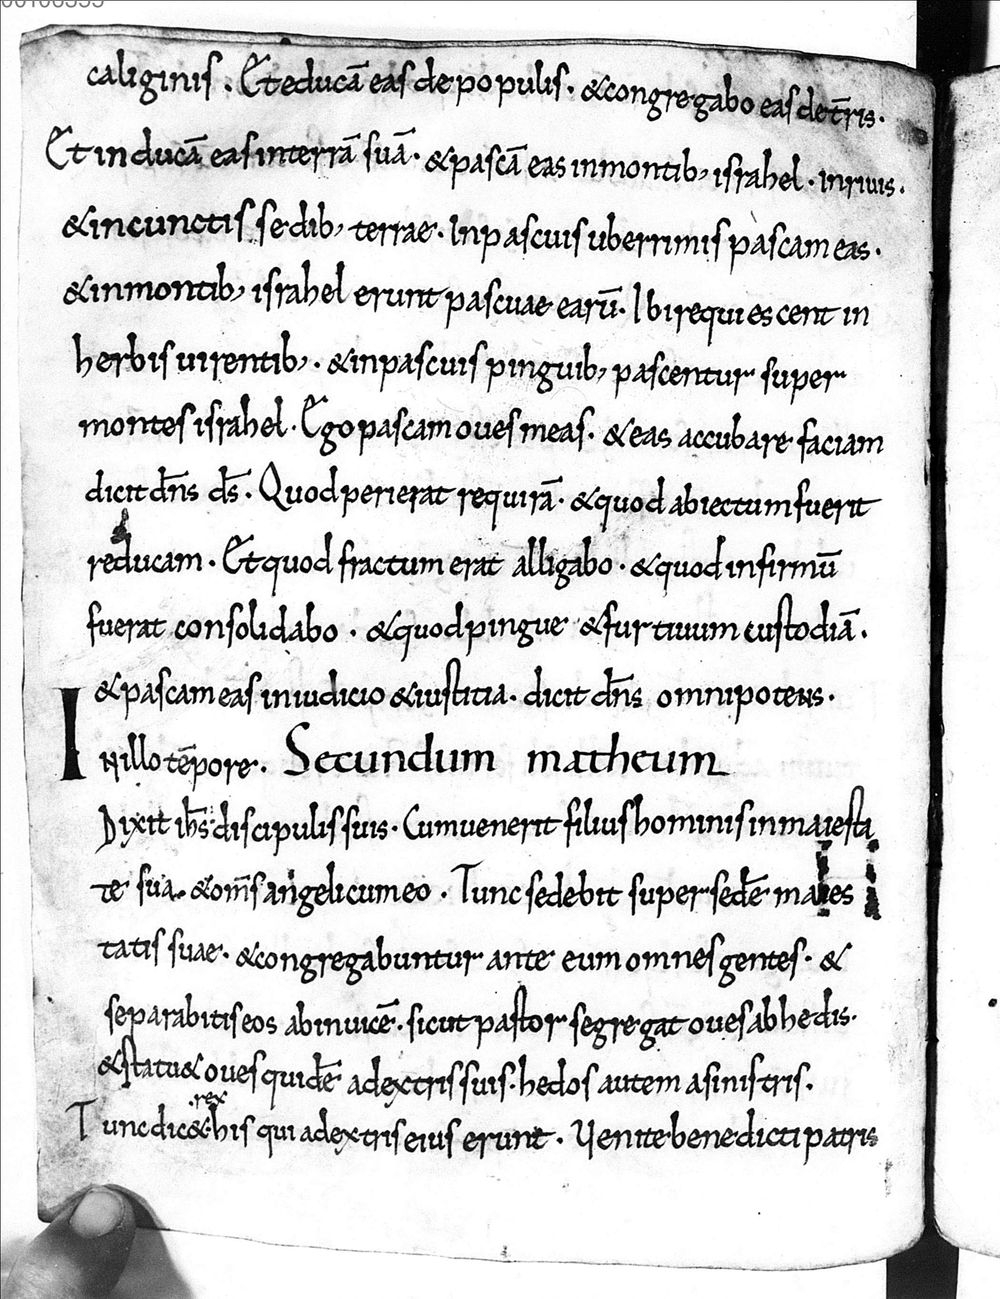 caliginis. Et educā eas de populis. & congregabo eas de t̄ris.
Et inducā eas in terrā suā. & pascā eas in montib; israhel. in riuis.
& in cunctis sedib; terrae. In pascuis uberrimis pascam eas.
& in montib; israhel erunt pascuae earū. Ibi requiescent in
herbis uirentib;. & in pascuis pinguib; pascentur super
montes israhel. Ego pascam oues meas. & eas accubare faciam
dicit dn̄s ds̄. Quod perierat requirā. & quod abiectum fuerit
reducam. Et quod fractum erat alligabo. & quod infirmū
fuerat consolidabo. & quod pingue & furtiuum custodiā.
& pascam eas in iudicio & iustitia. dicit dn̄s omnipotens.
In illo tēpore. Secundum matheum
Dixit ih̄s discipulis suis. Cum uenerit filius hominis in maiesta
te sua. & om̄s angeli cum eo. Tunc sedebit super sedē maies
tatis suae. & congregabuntur ante eum omnes gentes. &
separabit iseos abinuicē. sicut pastor segregat oues ab hedis.
& statu& oues quidē a dextris suis. hedos autem a sinistris.
Tunc dic& rex his qui a dextris eius erunt. Uenite benedicti patris